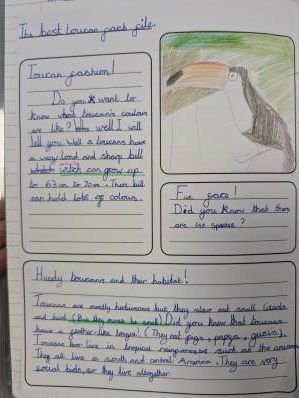 The best toucan fact file.
Toucan fashion!
Do you want to
know what toucan's coulars
are like? well I will
tell you. Well a toucans have
a very lond and sharp bill
witch can grow up
to 63 cm to 70cm. There bill
can hold lots of colours.
Fun face!
Did you know that there
are species?
Hundy toucans and their habitat!
Toucans are mostly herbivorous but they also eat small lizards
and bird (But they must be small) Did you know that toucans
have a feather-like tongue! (They eat figs, papya, guava).
Toucans live in tropical rainforests such as the amazon
They all live in south and cental America. They are very
social birds, so they live altogether.